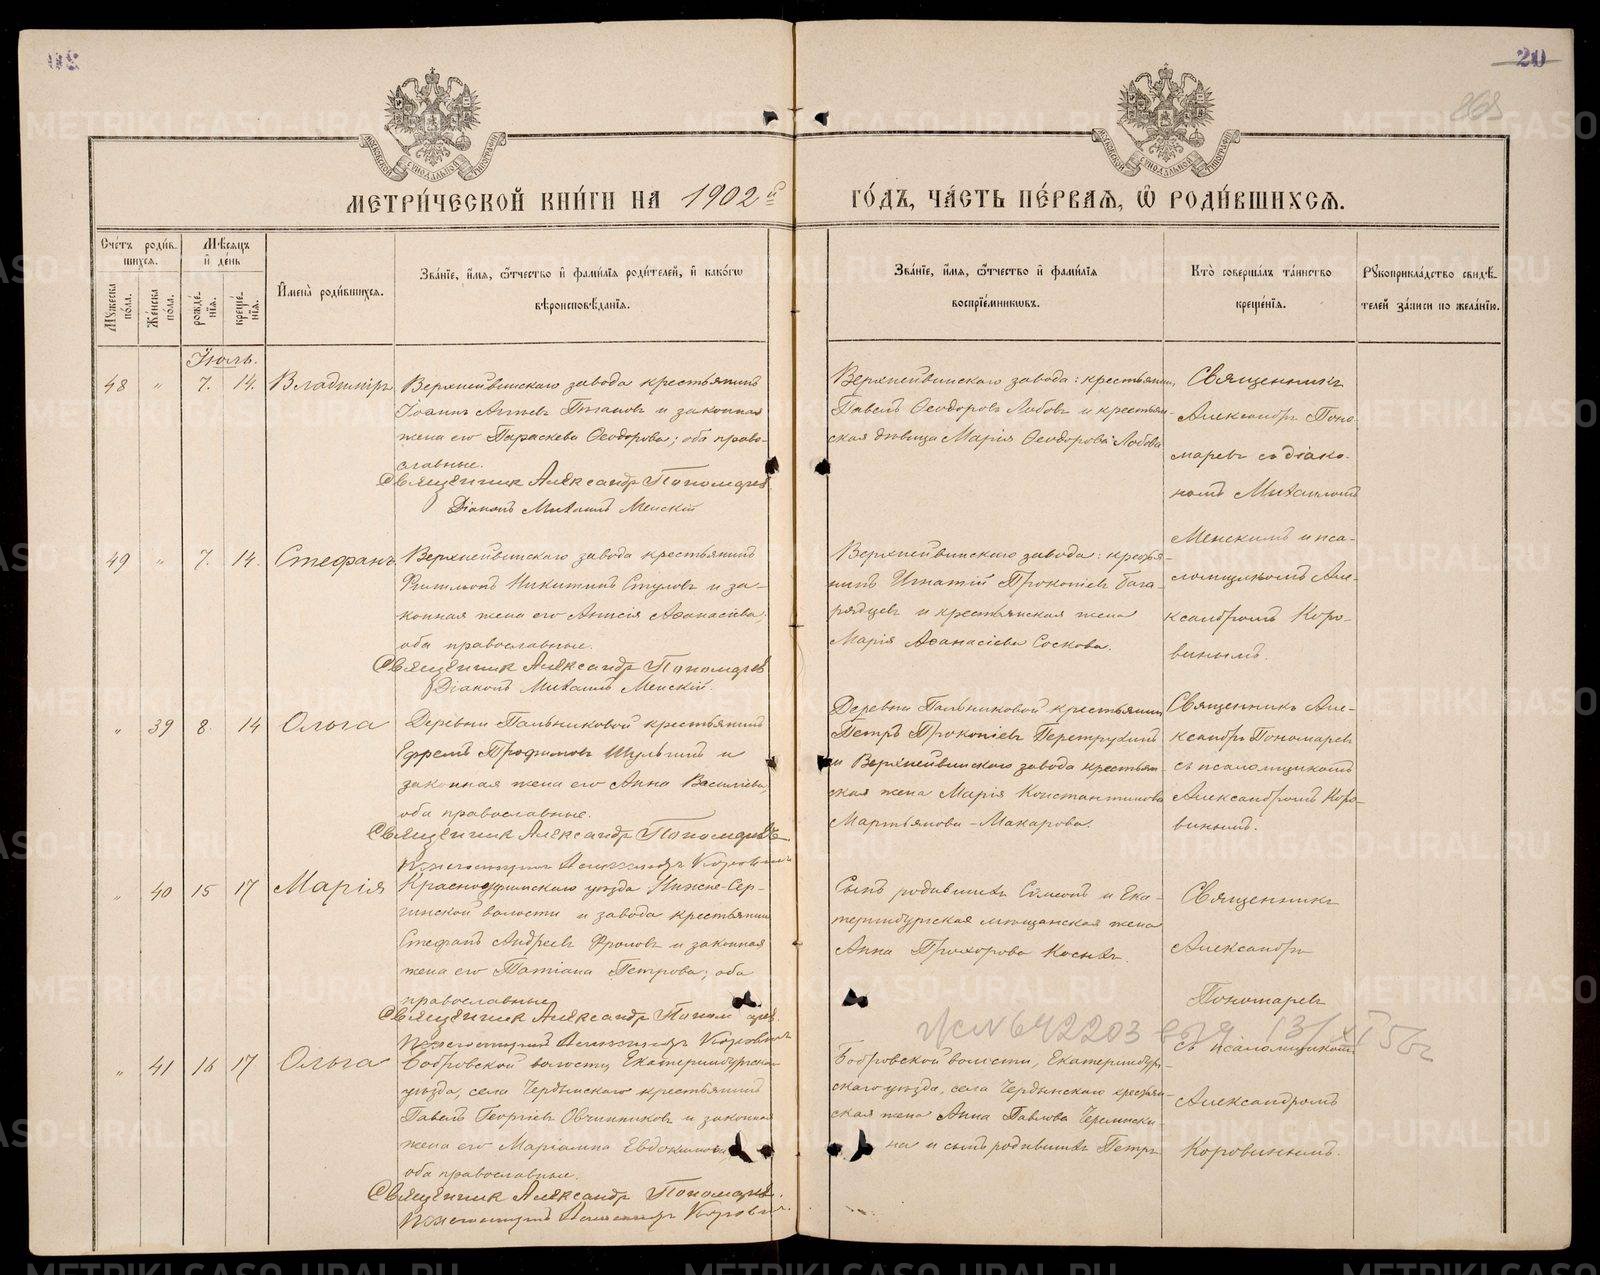 20
МЕТРИ́ЧЕСКОЙ КНИ́ГИ НА 1902 й
ГО́ДЪ, ЧА́СТЬ ПЕ́РВАѦ, Ѡ РОДИ́ВШИХСѦ.
Сче́тъ роди́в-
шихсѧ.
Мꙋжеска по́ла.
Же́нска по́ла.
Мѣ́сѧцъ
и де́нь
рожде́-
нїѧ.
креще́-
нїѧ.
Имена̀ роди́вшихсѧ.
Зва́нїе, и́мѧ, ѻ́тчество и фами́лїѧ роди́телей, и како́гѡ
вѣроисповѣ́данїѧ.
Зва́нїе, и́мѧ, ѻ́тчество и фами́лїѧ
воспрїе́мникѡвъ.
Кто̀ соверша́лъ та́инство
креще́нїѧ.
Рꙋкоприкла́дство свидѣ́-
телей за́писи по жела́нїю.
Іюль.
48 " 7. 14. Владиміръ
Верхнейвинскаго завода крестьянинъ
Іоаннъ
и законная
жена его Параскева Ѳеодорова; оба право-
славные.
Священник Александр Пономарев
Діаконъ Михаилъ Менскій
Верхнейвинскаго завода: крестьянинъ
Павелъ Ѳеодоровъ Лобовъ и крестьян-
ская дѣвица Марія Ѳеодорова Лобова
Священникъ
Александръ Поно-
маревъ съ діако-
номъ Михаиломъ
Менскимъ и пса-
ломщикомъ Але-
ксандромъ Коро-
винымъ.
49 " 7. 14. Стефанъ
Верхнейвинскаго завода крестьянинъ
Филимонъ Никитинъ Стуловъ и за-
конная жена его Анисія Аѳанасіева;
оба православные.
Священник Александр Пономарев
Діаконъ Михаилъ Менскій.
Верхнейвинскаго завода: крестья-
нинъ Игнатій Прокопіевъ Бага-
рядцевъ и крестьянская жена
Марія Аѳанасіева Соскова.
" 39 8. 14 Ольга
Деревни Пальниковой крестьянинъ
Ефремъ Трофимовъ Шульгинъ и
законная жена его Анна Василіева;
оба православные.
Священник Александр Пономаревъ
Псаломщикъ Александръ Коровинъ
Деревни Пальниковой крестьянинъ
Петръ Прокопіевъ Перетрухинъ
и Верхнейвинскаго завода крестьян-
ская жена Марія Константинова
Мартьянова-Макарова.
Священникъ Але-
ксандръ Пономаревъ
съ псаломщикомъ
Александромъ Коро-
винымъ.
" 40 15 17 Марія
Красноуфимскаго уѣзда Нижне-Сер-
гинской волости и завода крестьянинъ
Стефанъ Андреевъ Фроловъ и законная
жена его Татіана Петрова; оба
православные
Священник Александр Пономарев.
Псаломщикъ Александръ Коровинъ
Сынъ родившихъ Сѵмеонъ и Ека-
теринбургская мѣщанская жена
Анна Прохорова Косыхъ.
Священникъ
Александръ
Пономаревъ
съ псаломщикомъ
Александромъ
Коровинымъ.
" 41 16 17 Ольга
Бобровской волости, Екатеринбургскаго
уѣзда, села крестьянинъ
Павелъ Георгіевъ Овчинниковъ и законная
жена его Маріамна Евдокимова;
оба православные.
Священник Александр Пономарев.
Псаломщикъ Александръ Коровинъ.
Бобровской волости, Екатеринбург-
скаго уѣзда, села крестьян-
ская жена Анна Павлова
на и сынъ родившихъ Петръ